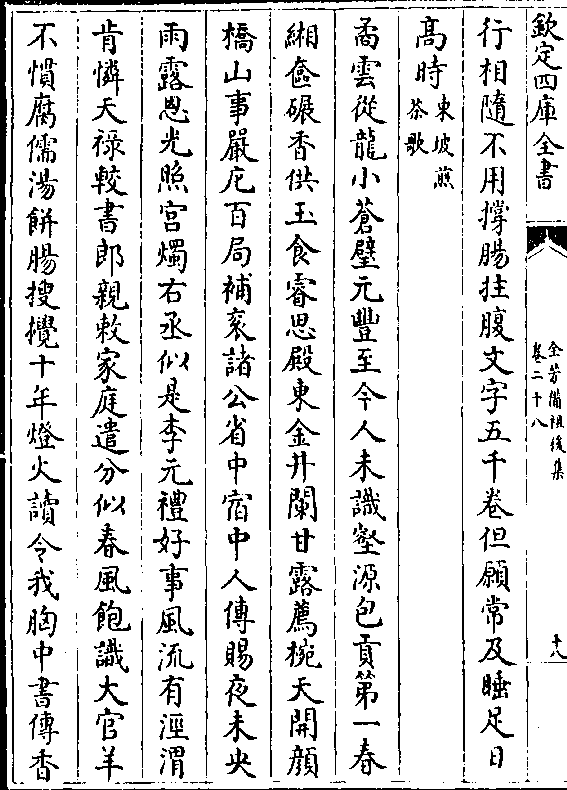 欽定四庫全書
全芳備祖後集
卷二十八
十八
行相隨不用撐腸拄腹文字五千卷但願常及睡足日
高時東坡煎茶歌
矞雲從龍小蒼璧元豐至今人未識壑源包貢第一春
緗奩碾香供玉食睿思殿東金井闌甘露薦椀天開顔
橋山事嚴庀百局補衮諸公省中宿中人傳賜夜未央
雨露恩光照宫燭右丞似是李元禮好事風流有涇渭
肯憐天祿較書郎親敕家庭遣分似春風飽識大官羊
不慣腐儒湯餅腸搜攪十年燈火讀令我胸中書傳香